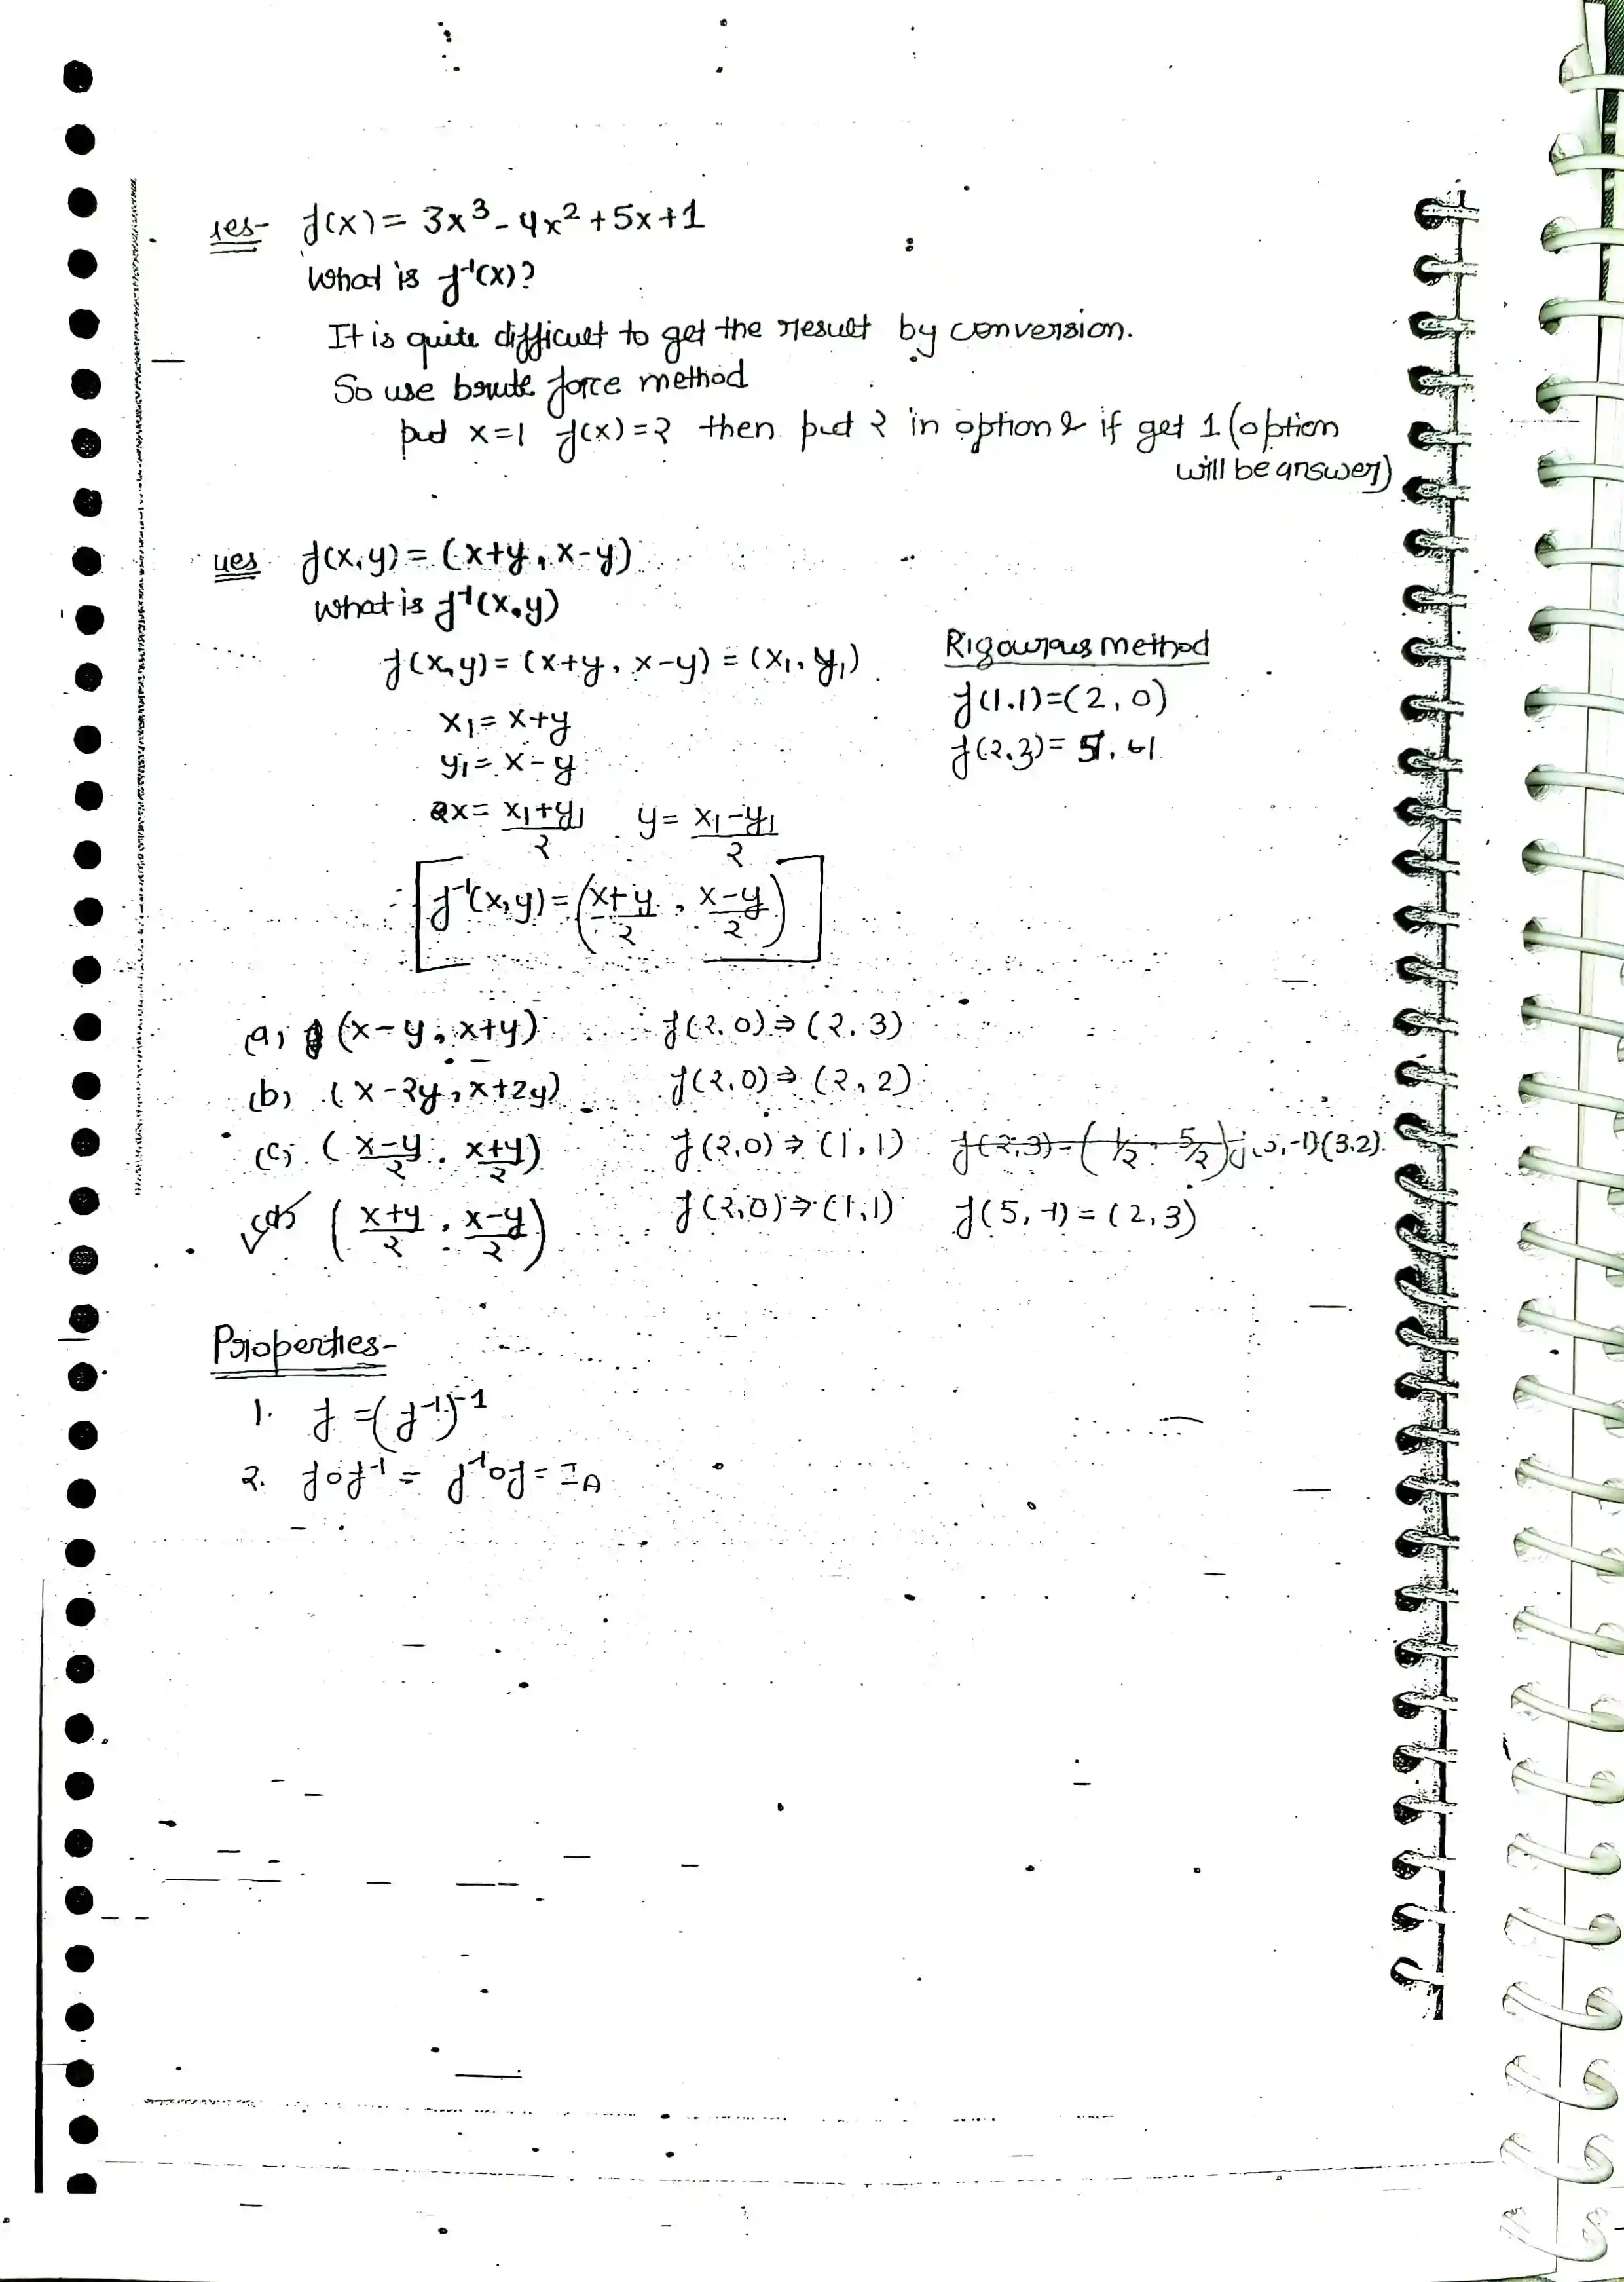 f(x) = 3x³ - 4x² + 5x + 1
What is f⁻¹(x)?
It is quite difficult to get the result by conversion.
So use brute force method
put x=1 f(x)=2 then put 2 in option & if get 1 (option
will be answer)
ues f(x,y) = (x+y, x-y)
What is f⁻¹(x,y)
f(x,y) = (x+y, x-y) = (x₁, y₁)
x₁ = x+y
y₁ = x-y
x = (x₁+y₁)/2 y = (x₁-y₁)/2
f⁻¹(x,y) = ((x+y)/2, (x-y)/2)
Rigourous method
f(1,1) = (2, 0)
f(2,3) = 5, -1
(a) (x-y, x+y) f(2,0) ⇒ (2, 3)
(b) (x-2y, x+2y) f(2,0) ⇒ (2, 2)
(c) ((x-y)/2, (x+y)/2) f(2,0) ⇒ (1, 1) f(2,3) = (1/2, 5/2) (3,2)
(d) ((x+y)/2, (x-y)/2) f(2,0) ⇒ (1,1) f(5,-1) = (2,3)
Properties-
1. f = (f⁻¹)⁻¹
2. fof⁻¹ = f⁻¹of = I_A